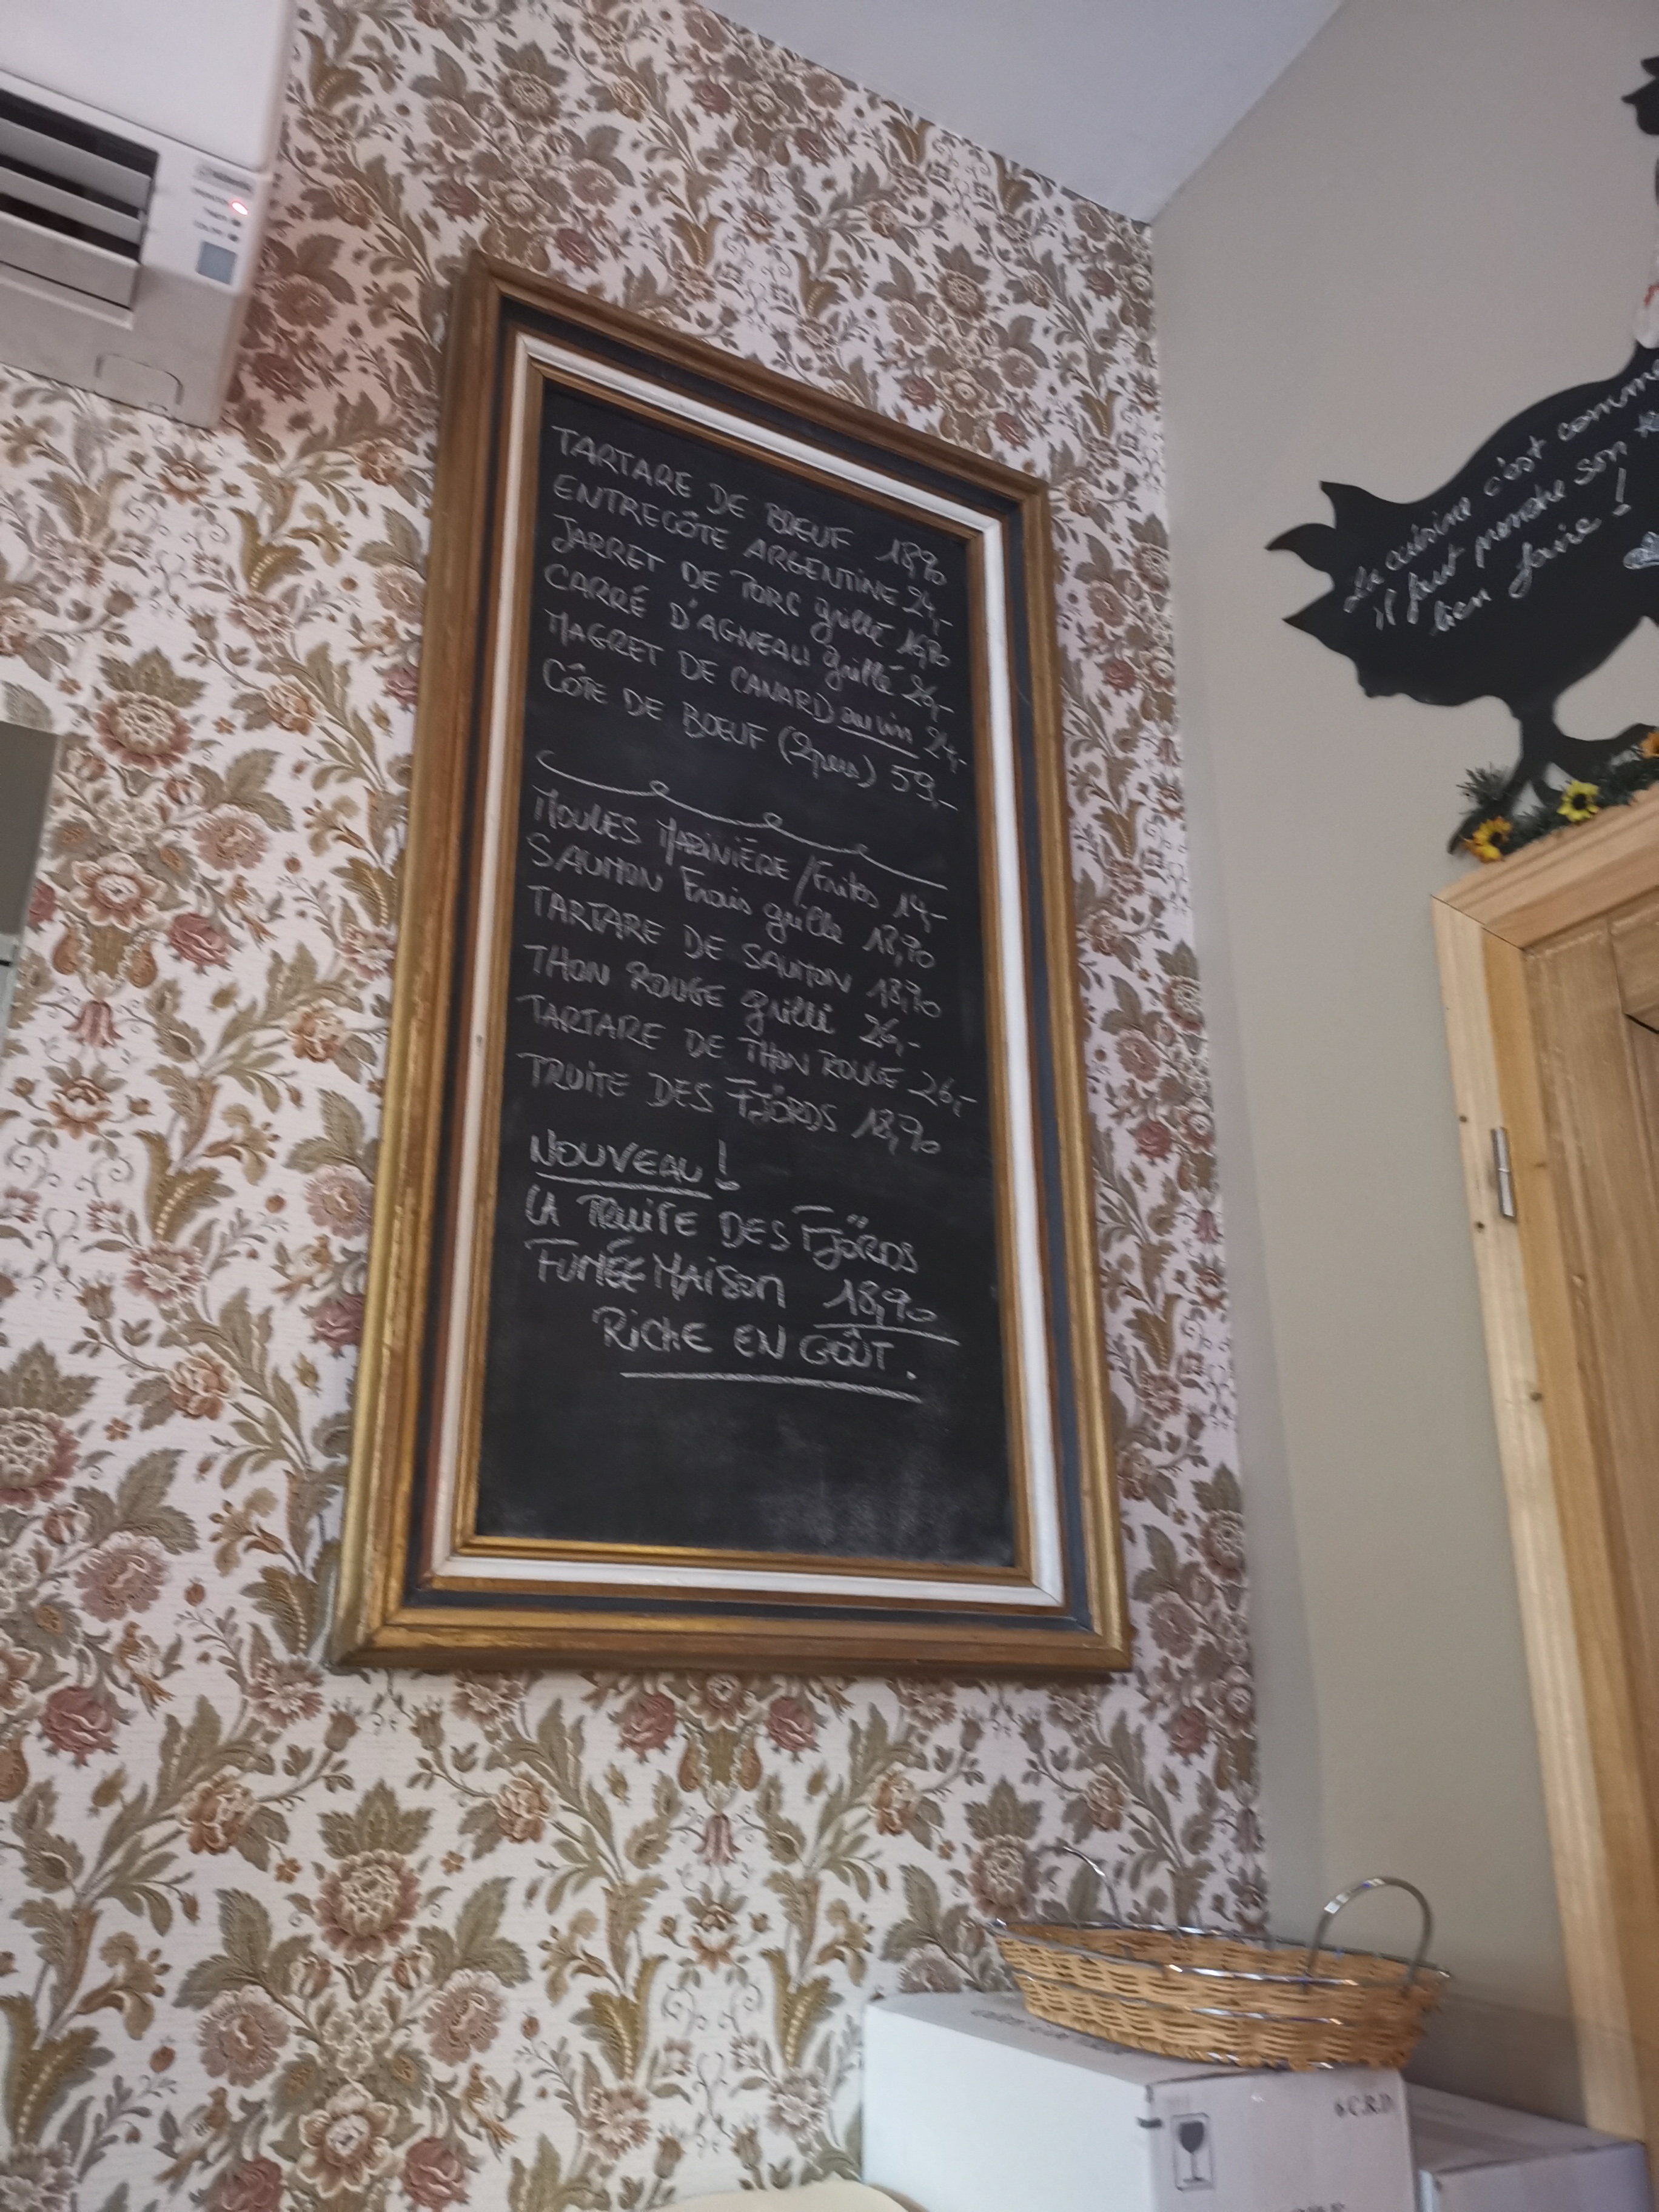 TARTARE DE BŒUF 18,90
ENTRECÔTE ARGENTINE 24,-
JARRET DE PORC grillé 19,90
CARRÉ D'AGNEAU grillé 26,-
MAGRET DE CANARD au vin 24,-
CÔTE DE BŒUF (2pers) 59,-
MOULES MARINIÈRE/Frites 14,-
SAUMON Frais grillé 18,90
TARTARE DE SAUMON 18,90
THON ROUGE grillé 26,-
TARTARE DE THON ROUGE 26,-
TRUITE DES FJÖRDS 18,90
NOUVEAU !
LA TRUITE DES FJÖRDS
FUMÉE MAISON 18,90
RICHE EN GOÛT.
La cuisine c'est comme
il faut prendre son
bien faire !
6 C.R.D